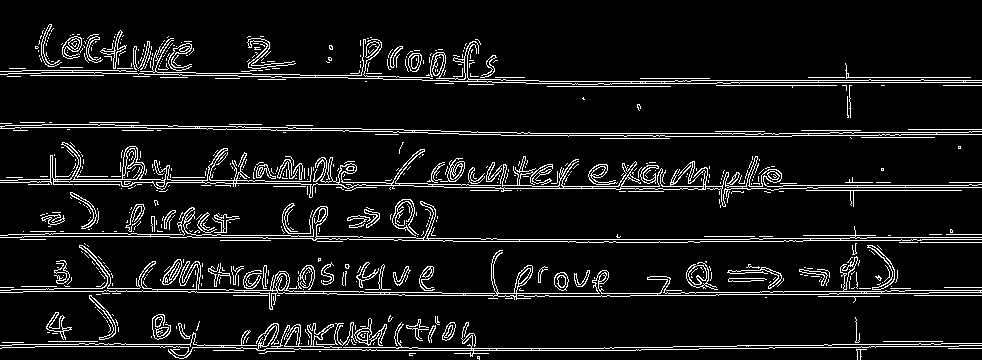 Lecture 2 : Proofs
1) By Example / counter example
2) Direct (P => Q)
3) contrapositive (prove ¬Q => ¬P)
4) By contradiction